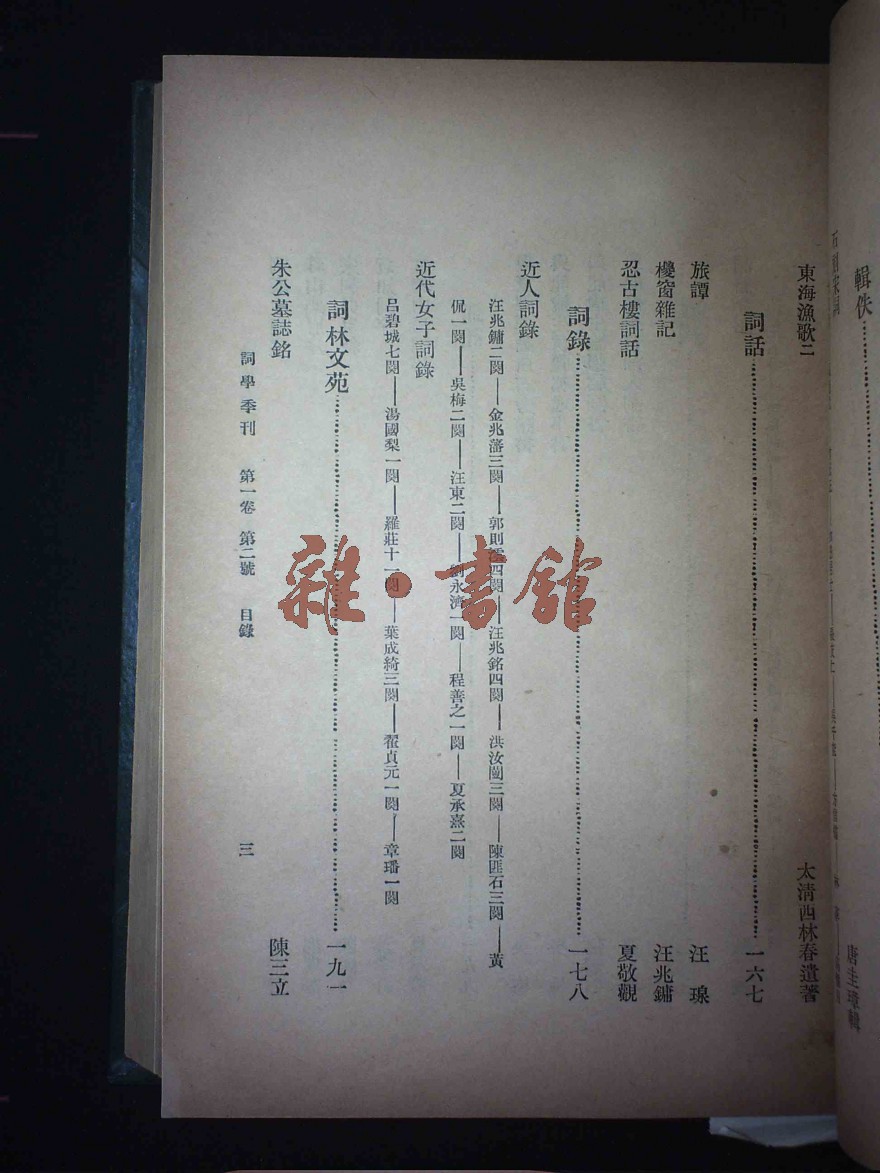 輯佚
唐圭璋輯
東海漁歌二 太清西林春遺著
詞話 一六七
旅譚 汪瑔
櫌窗雜記 汪兆鏞
忍古樓詞話 夏敬觀
詞錄 一七八
近人詞錄
汪兆鏞二闋——金兆藩三闋——郭則澐四闋——汪兆銘四闋——洪汝闓三闋——陳匪石三闋——黃
侃一闋——吳梅二闋——汪東二闋——劉永濟一闋——程善之一闋——夏承燾二闋
近代女子詞錄
呂碧城七闋——湯國梨一闋——羅莊十一闋——葉成綺三闋——翟貞元一闋——章璠一闋
詞林文苑 一九一
朱公墓誌銘 陳三立
詞學季刊 第一卷 第二號 目錄 三
雜·書館